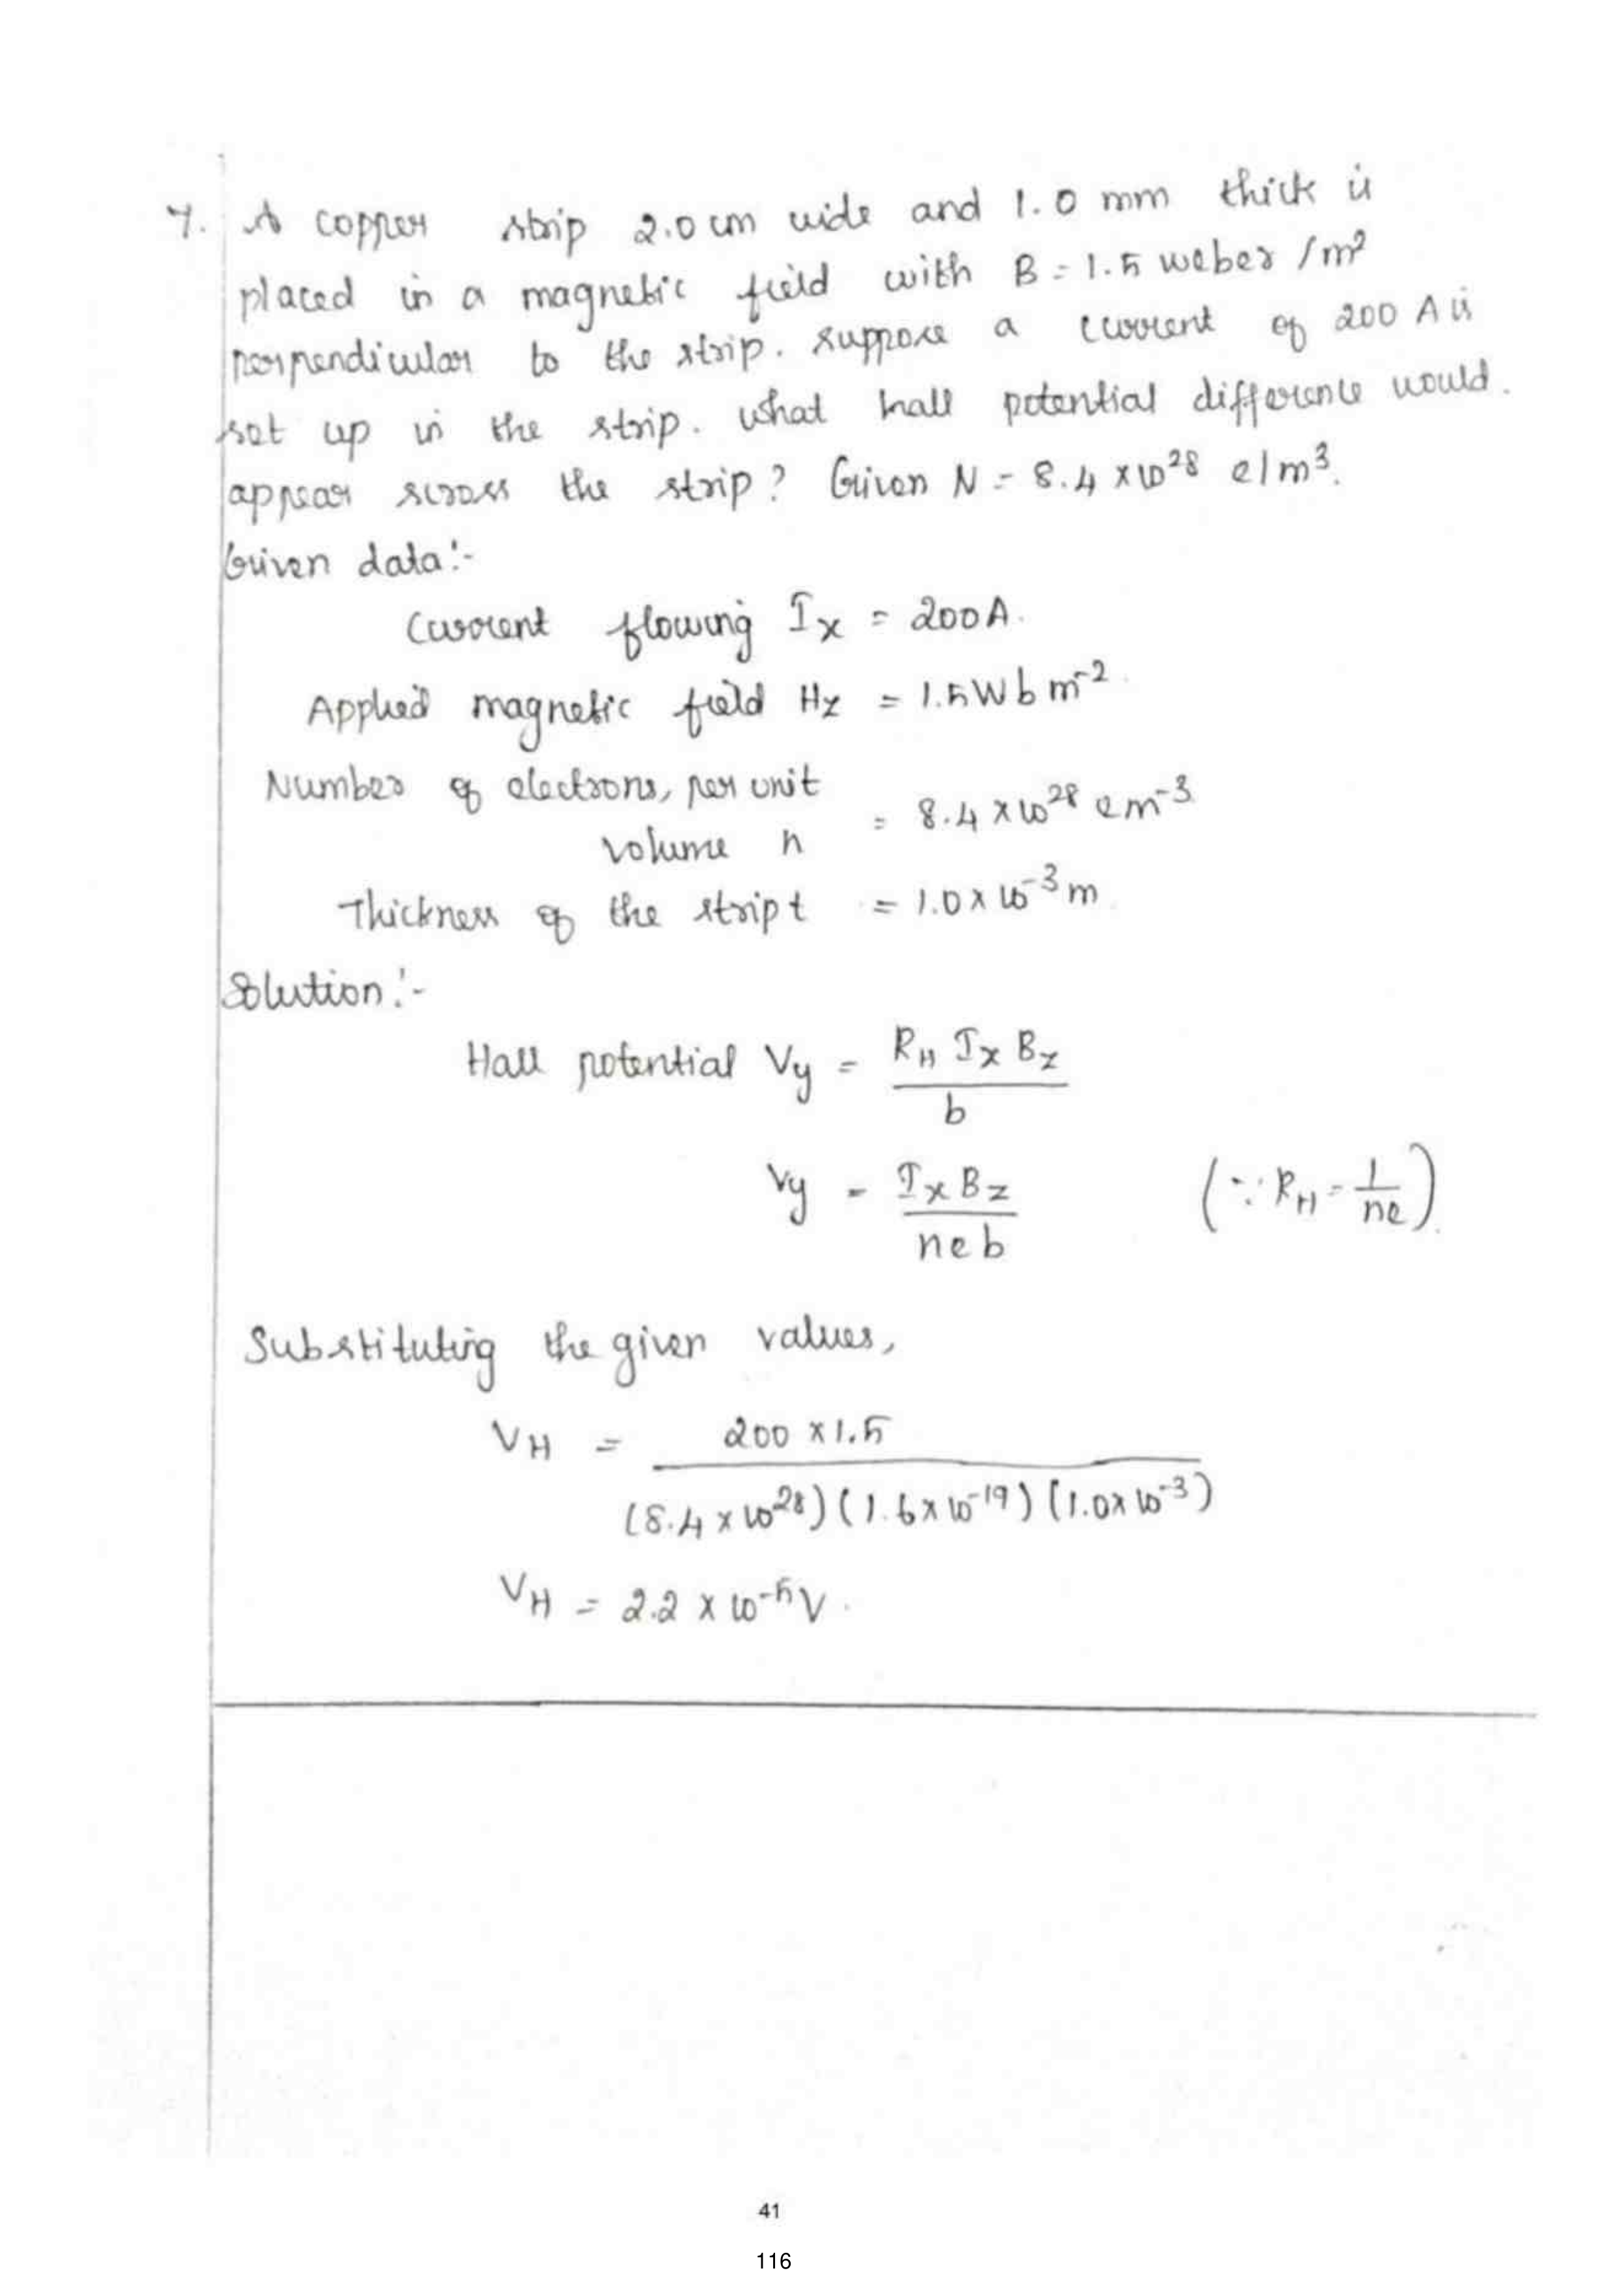 7. A copper strip 2.0 cm wide and 1.0 mm thick is
placed in a magnetic field with B = 1.5 weber /m²
perpendicular to the strip. suppose a current of 200 A is
set up in the strip. what hall potential difference would.
appear scross the strip? Given N = 8.4 × 10²⁸ e/m³.
Given data:-
Current flowing Iₓ = 200A.
Applied magnetic field Hz = 1.5 Wb m⁻².
Number of electrons, per unit
volume n = 8.4 × 10²⁸ e m⁻³
Thickness of the strip t = 1.0 × 10⁻³ m.
Solution:-
Hall potential Vy = R_H Iₓ B_z / b
Vy = Iₓ B_z / neb (∵ R_H = 1/ne).
Substituting the given values,
V_H = 200 × 1.5 / (8.4 × 10²⁸) (1.6 × 10⁻¹⁹) (1.0 × 10⁻³)
V_H = 2.2 × 10⁻⁵ V.
41
116